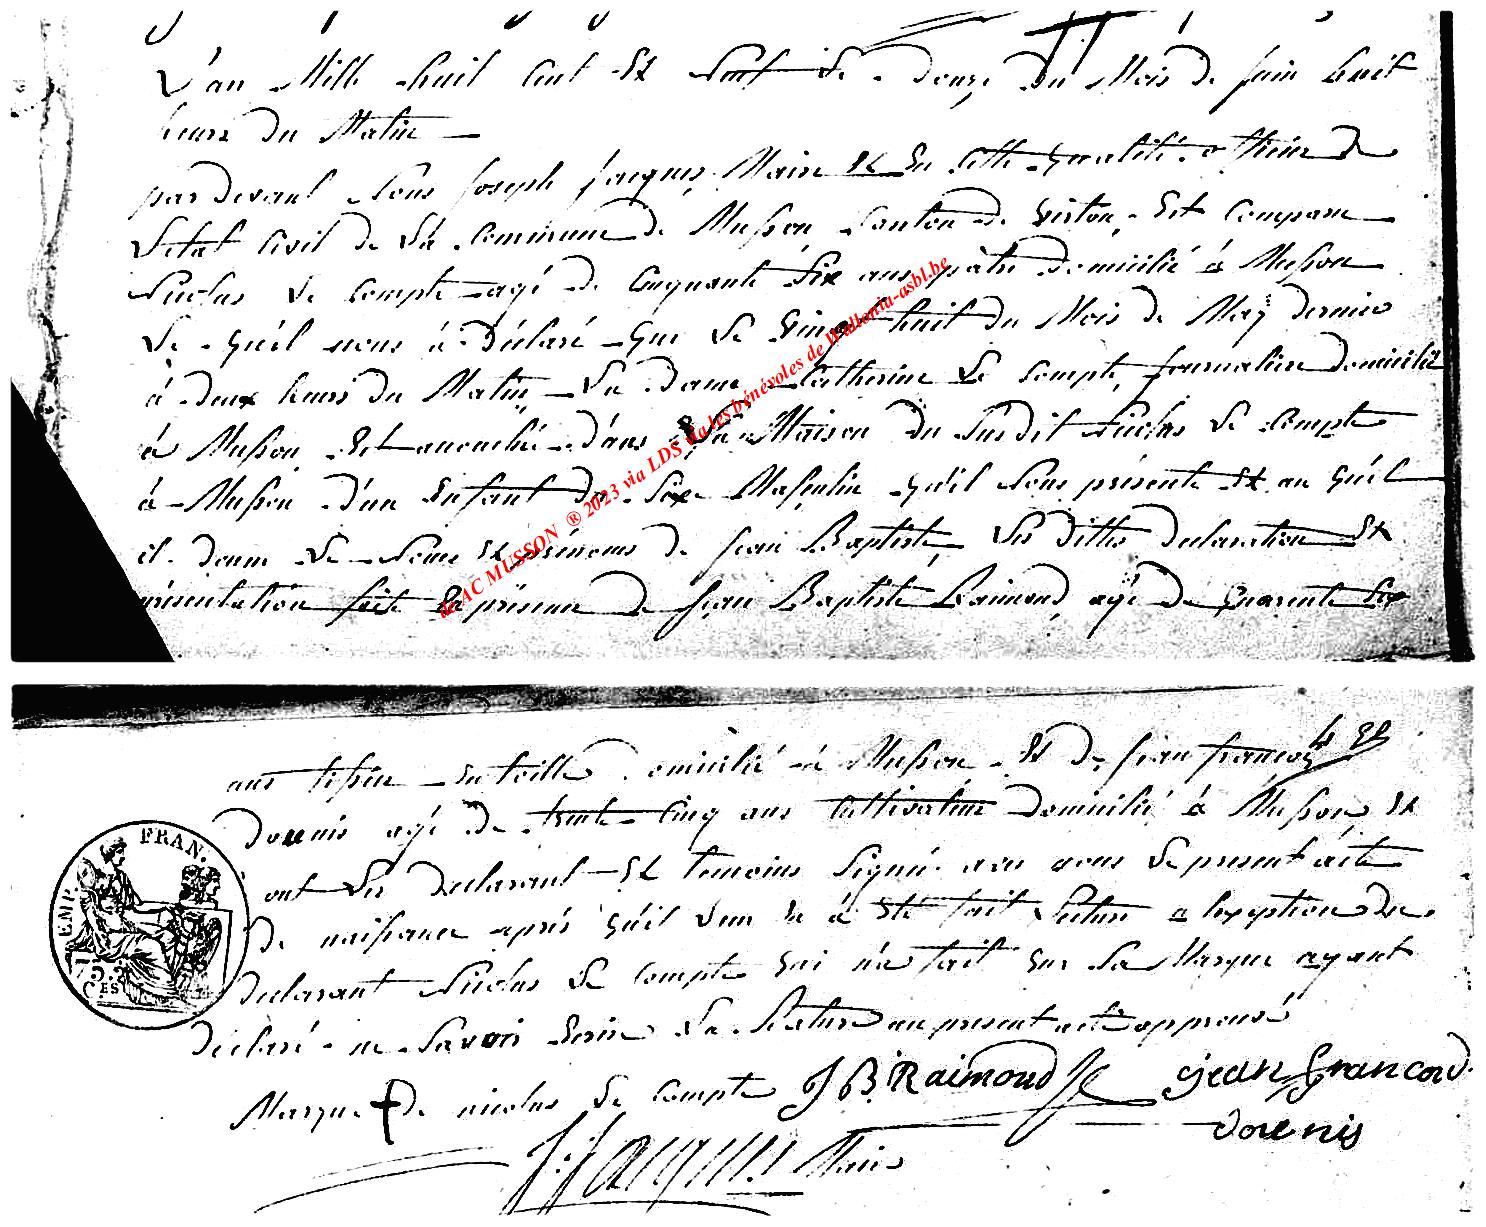 L'an Mille huit Cent Et Neuf Le douze Du Mois De juin huit
heures Du Matin
par Devant Nous joseph jacques Maire Et En Cette qualité officier De
L'état Civil De La Commune De Musson Canton De Virton, Est Comparu
Nicolas Le Compte agé De Cinquante Six ans pâtre Domicilié à Musson
Le quél nous à Déclaré que Le Vingt huit Du Mois De May dernier
à deux heures Du Matin La Dame Catherine Le Compte journalière Domicilié
à Musson Est accouchée Dans La Maison Du Susdit Nicolas Le Compte
à Musson D'un Enfant Du Sexe Masculin qu'il Nous présente Et au quél
il donne Le Nom Et prénoms De jean Baptiste, Les dittes declaration Et
présentation fait En présence De jean Baptiste Raimond agé De quarente Six
ans tisseur En toille Domicilié à Musson Et De jean francois
Dounis agé De trente Cinq ans Cultivateur Domicilié à Musson Et
ont Les declarant Et temoins Signé avec nous Le present acte
De naissance après qu'il Leur En à Eté fait Lecture a L'exception Du
declarant Nicolas Le Compte qui n'a fait que Sa Marque ayant
déclaré ne Savoir Ecrire La Rature au present acte approuvé
Marque De nicolas Le Compte J B Raimond jean francois
dounis
J: Jacques Maire
EMP. FRAN.
de AC MUSSON ® 2023 via LDS via les bénévoles de Wallonia-asbl.be